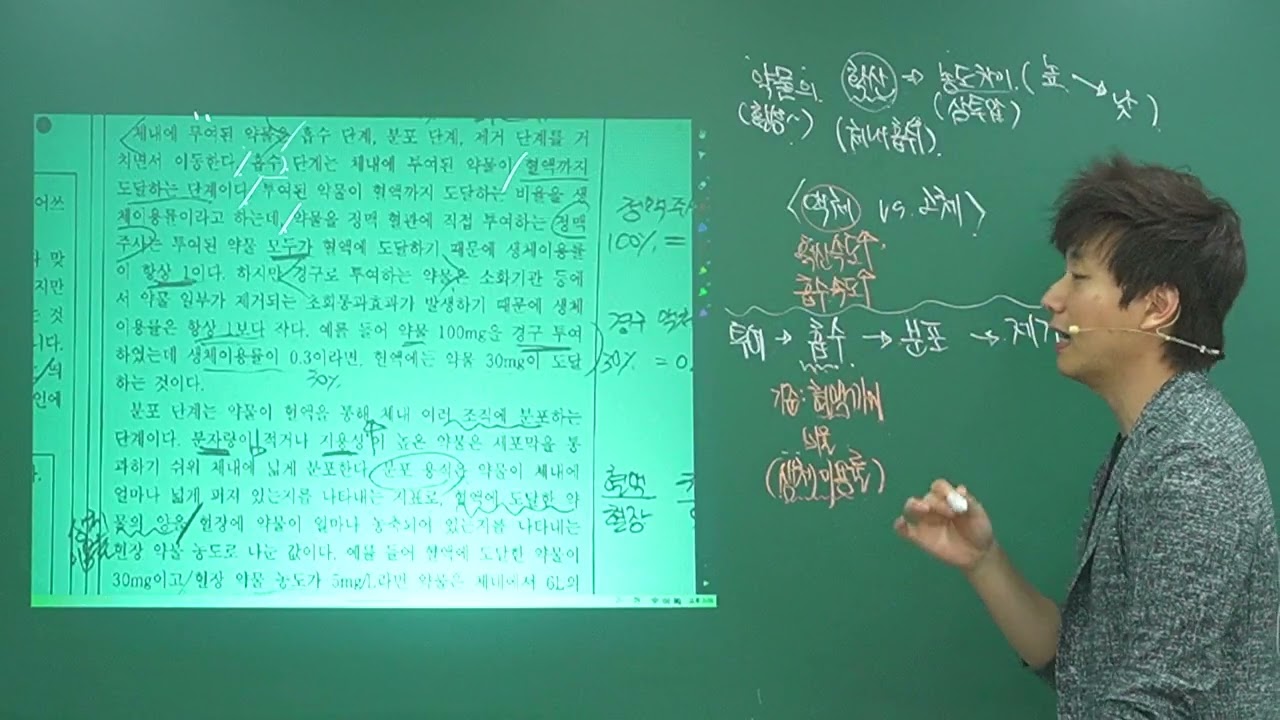 체내에 투여된 약물은 흡수 단계, 분포 단계, 제거 단계를 거
치면서 이동한다. 흡수 단계는 체내에 투여된 약물이 혈액까지
도달하는 단계이다. 투여된 약물이 혈액까지 도달하는 비율을 생
체이용률이라고 하는데, 약물을 정맥 혈관에 직접 투여하는 정맥
주사는 투여된 약물 모두가 혈액에 도달하기 때문에 생체이용률
이 항상 1이다. 하지만 경구로 투여하는 약물은 소화기관 등에
서 약물 일부가 제거되는 초회통과효과가 발생하기 때문에 생체
이용률은 항상 1보다 작다. 예를 들어 약물 100mg을 경구 투여
하였는데 생체이용률이 0.3이라면, 혈액에는 약물 30mg이 도달
하는 것이다.
30%
분포 단계는 약물이 혈액을 통해 체내 여러 조직에 분포하는
단계이다. 분자량이 적거나 지용성이 높은 약물은 세포막을 통
과하기 쉬워 체내에 넓게 분포한다. 분포 용적은 약물이 체내에
얼마나 넓게 퍼져 있는지를 나타내는 지표로, 혈액에 도달한 약
물의 양을 혈장에 약물이 얼마나 농축되어 있는지를 나타내는
혈장 약물 농도로 나눈 값이다. 예를 들어 혈액에 도달한 약물이
30mg이고 혈장 약물 농도가 5mg/L라면 약물은 체내에서 6L의
어쓰
맞
지만
것
니다.
의
인에
정맥주사
100% =
경구
30% = 0.
혈액
혈장
약물의 확산 → 농도차이 (높 → 낮)
(체내흡수) (삼투압)
〈액체 vs 고체〉
확산속도↑
흡수속도↑
투여 → 흡수 → 분포 → 제거
기준: 혈액까지
비율
(생체이용률)